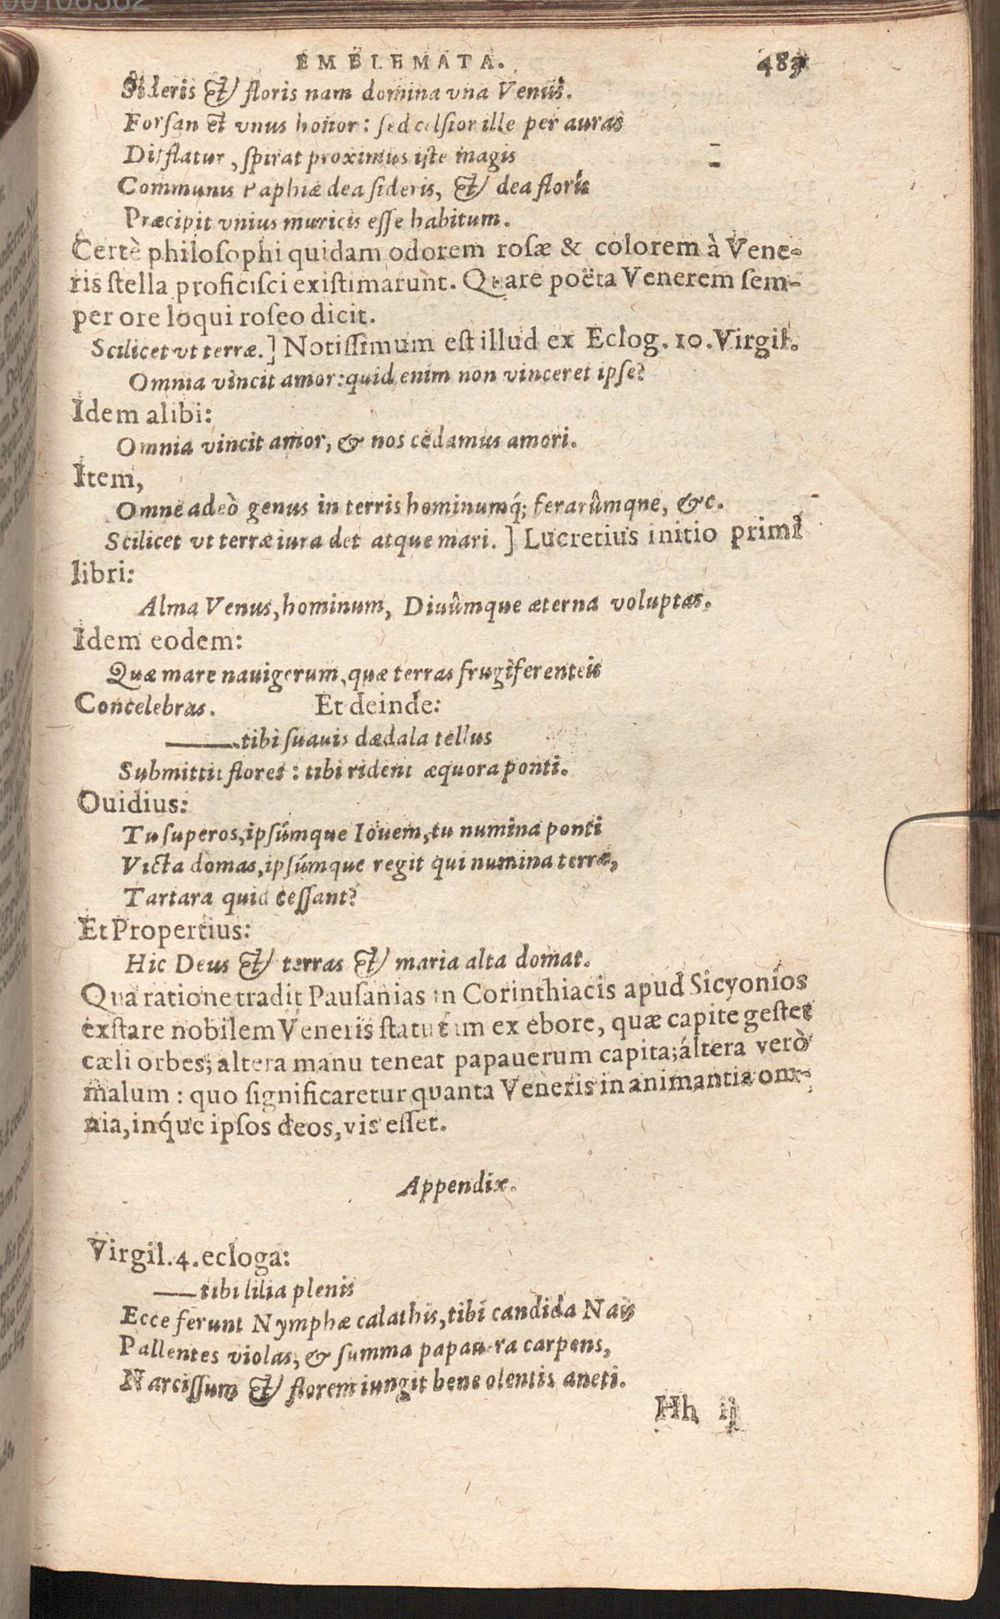 EMBLEMATA. 483
Sideris & floris nam domina vna Venus.
Forsan et vnus honor: sed celsior ille per auras
Difflatur, spirat proximus iste magis
Communis Paphiæ dea sideris, & dea floris
Præcipit vnius muricis esse habitum.
Certè philosophi quidam odorem rosæ & colorem à Vene-
ris stella proficisci existimarunt. Quare poëta Venerem sem-
per ore loqui roseo dicit.
Scilicet vt terræ.] Notissimum est illud ex Eclog. 10. Virgil.
Omnia vincit amor: quid enim non vinceret ipse?
Idem alibi:
Omnia vincit amor, & nos cedamus amori.
Item,
Omne adeò genus in terris hominumq́; ferarûmque, &c.
Scilicet vt terræ iura det atque mari.] Lucretius initio primi
libri:
Alma Venus, hominum, Diuûmque æterna voluptas.
Idem eodem:
Quæ mare nauigerum, quæ terras frugiferenteis
Concelebras. Et deinde:
—— tibi suauis dædala tellus
Submittit flores: tibi rident æquora ponti.
Ouidius:
Tu superos, ipsúmque Iouem, tu numina ponti
Victa domas, ipsúmque regit qui numina terræ,
Tartara quid cessant?
Et Propertius:
Hic Deus & terras & maria alta domat.
Qua ratione tradit Pausanias in Corinthiacis apud Sicyonios
exstare nobilem Veneris statuam ex ebore, quæ capite gestet
cæli orbes; altera manu teneat papauerum capita; áltera verò
malum: quo significaretur quanta Veneris in animantia om-
nia, inq́ue ipsos deos, vis esset.
Appendix.
Virgil. 4. ecloga:
—— tibi lilia plenis
Ecce ferunt Nymphæ calathis, tibi candida Nais
Pallentes violas, & summa papauera carpens,
Narcissum & florem iungit bene olentis aneti.
Hh ij